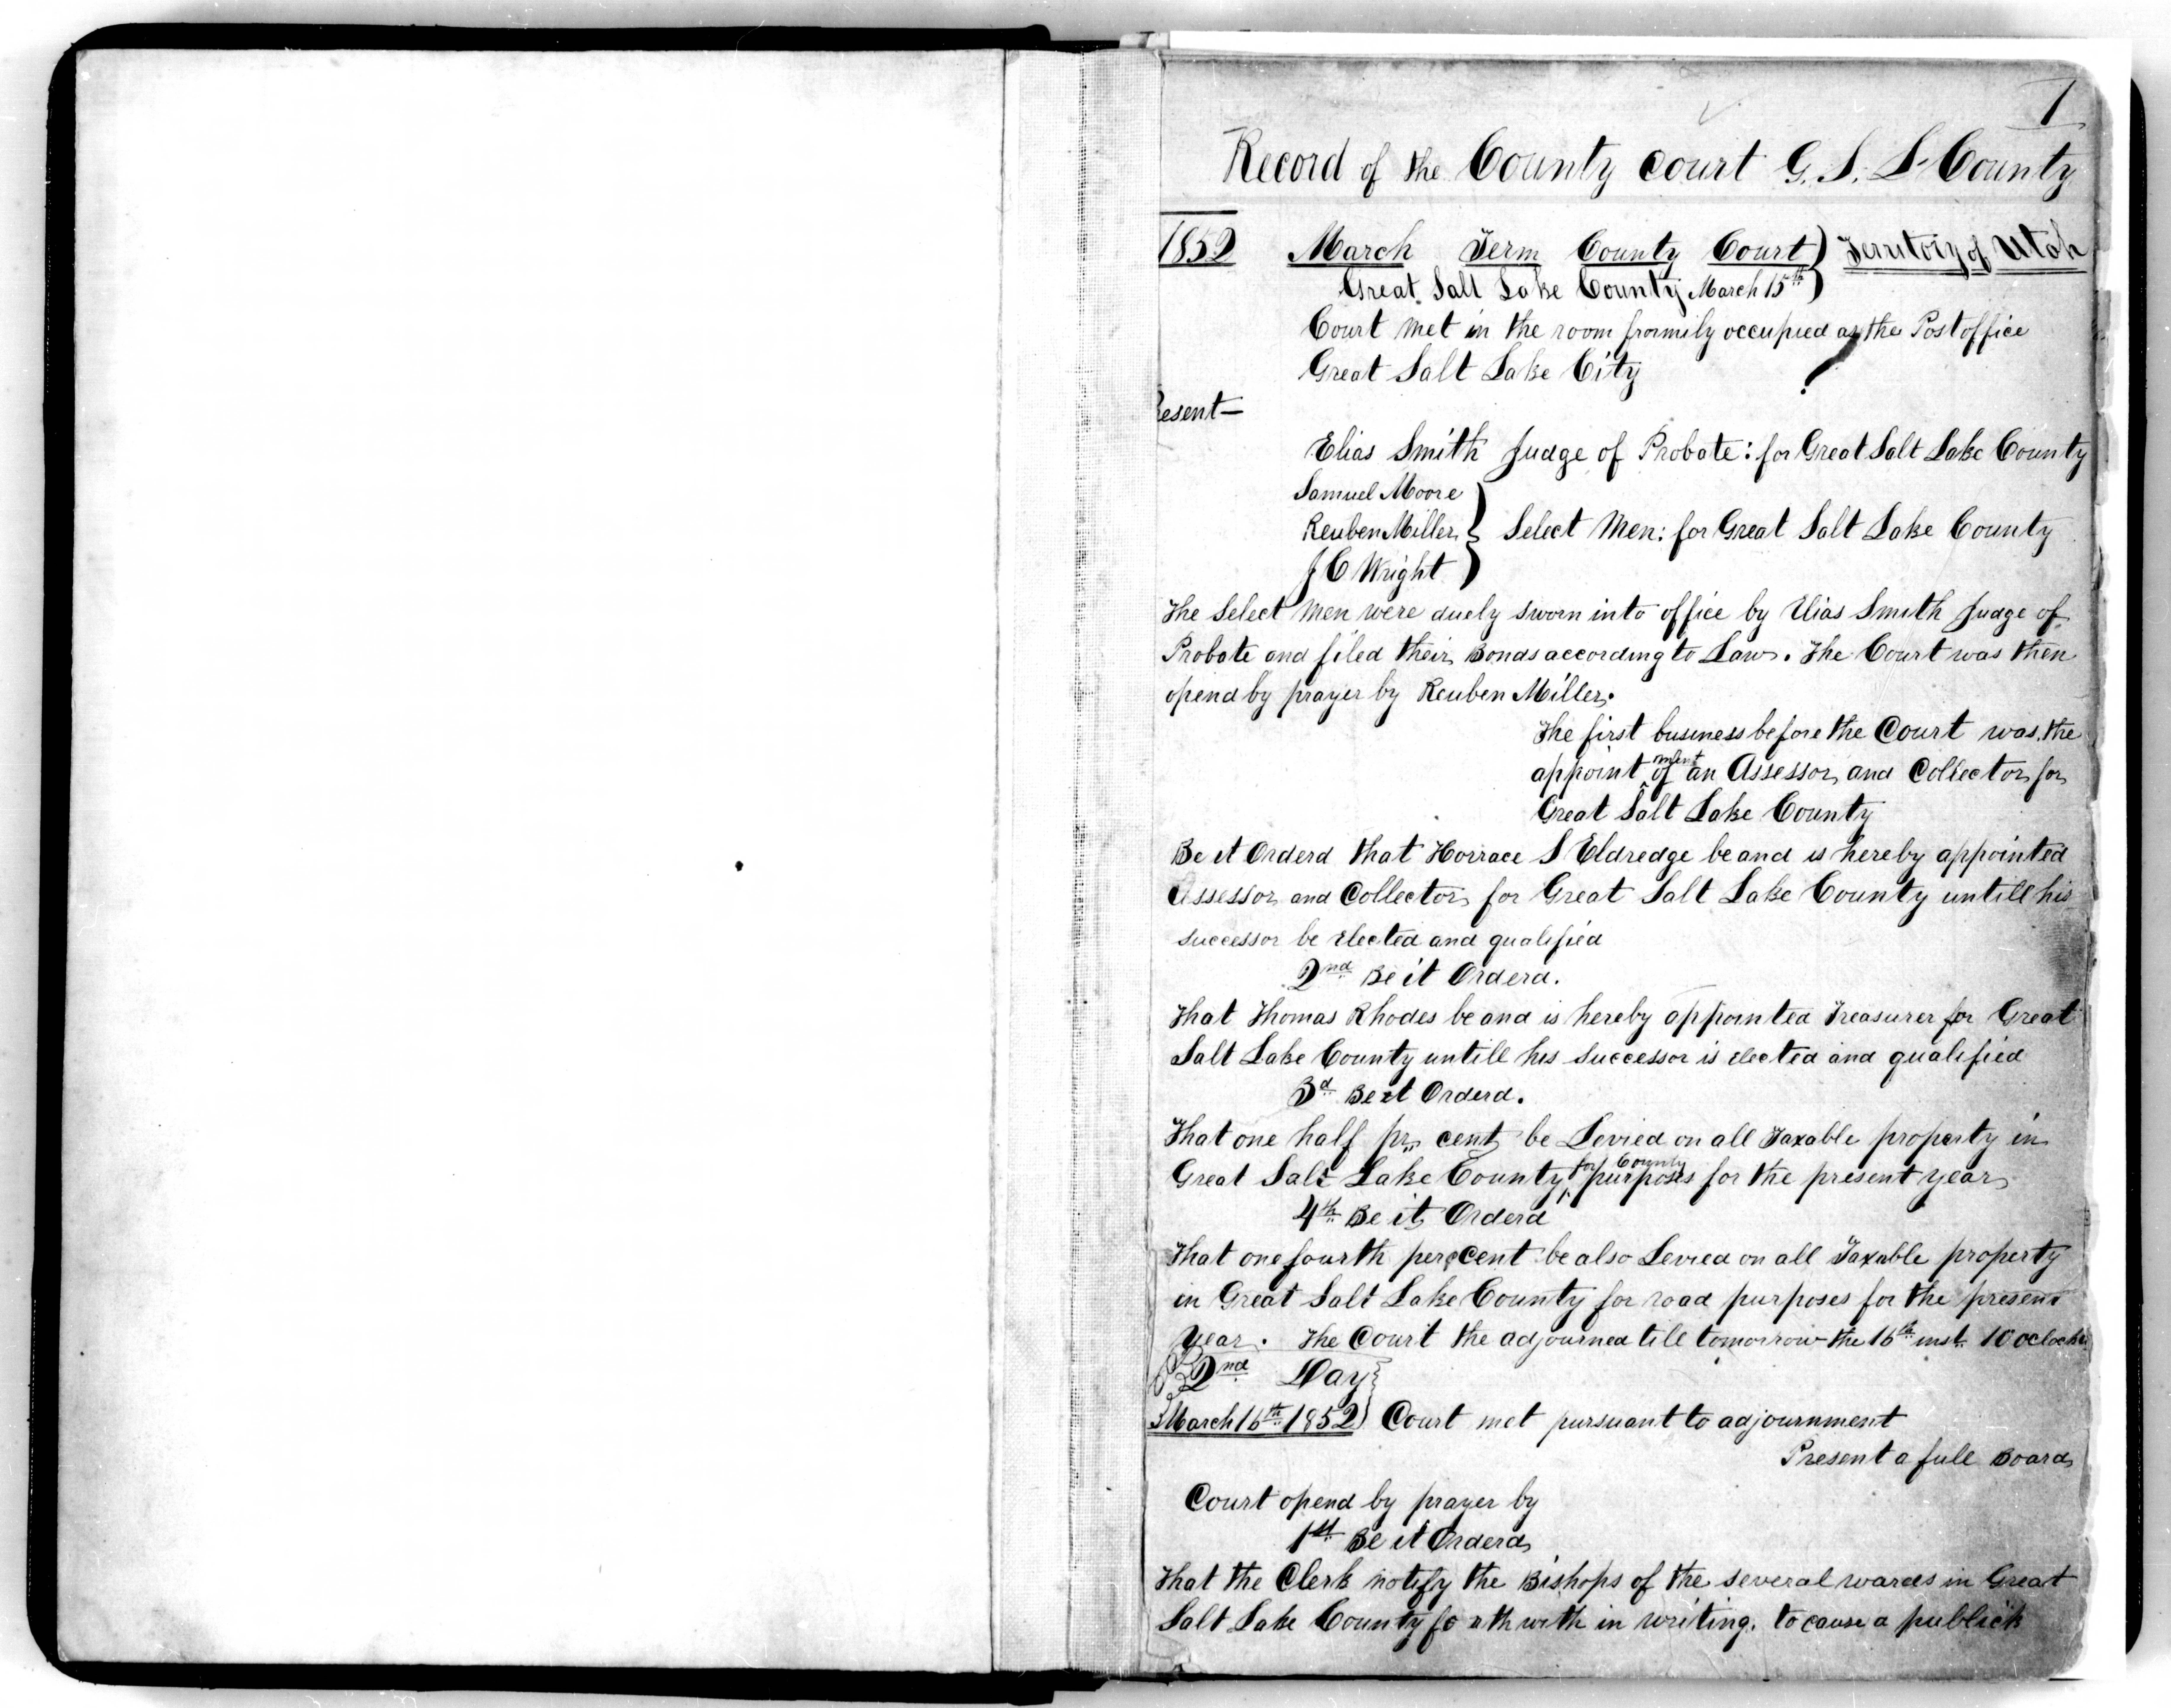 1
Record of the County court G. S. L. County
1852 March Term County Court) Territoiy of Utah
Great Salt Lake County March 15th)
Court met in the room fromily occupied as the Post office
Great Salt Lake City
resent—
Elias Smith Judge of Probate: for Great Salt Lake County
Samuel Moore
Reuben Miller } Select Men: for Great Salt Lake County
J C Wright
The Select Men were duely sworn into office by Elias Smith Judge of
Probate and filed their Bonds according to Law. The Court was then
opend by prayer by Reuben Miller.
The first business before the Court was the
appointment of an Assessor and Collector for
Great Salt Lake County
Be it Orderd that Horrace S Eldredge be and is hereby appointed
Assessor and Collector for Great Salt Lake County untill his
successor be Elected and qualified
2nd Be it Orderd.
That Thomas Rhodes be and is hereby appointed Treasurer for Great
Salt Lake County untill his Successor is Elected and qualified
3d Be it Orderd.
That one half pr cent be Levied on all Taxable property in
Great Salt Lake County for County purposes for the present year
4th Be it Orderd
That one fourth per cent be also Levied on all Taxable property
in Great Salt Lake County for road purposes for the present
Year. The Court the adjourned till tomorrow the 16th inst. 10 oclock
2nd Day
March 16th 1852 } Court met pursuant to adjournment
Present a full Board
Court opend by prayer by
1st Be it Orderd
That the Clerk notify the Bishops of the several wards in Great
Salt Lake County forthwith in writing. to cause a publick